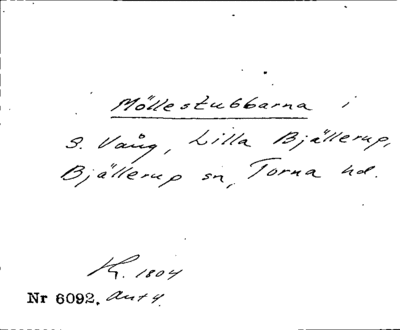 Möllestubbarna i
S. Vång, Lilla Bjällerup,
Bjällerup sn, Torna hd.
K. 1804
Nr 6092, Ant 4.